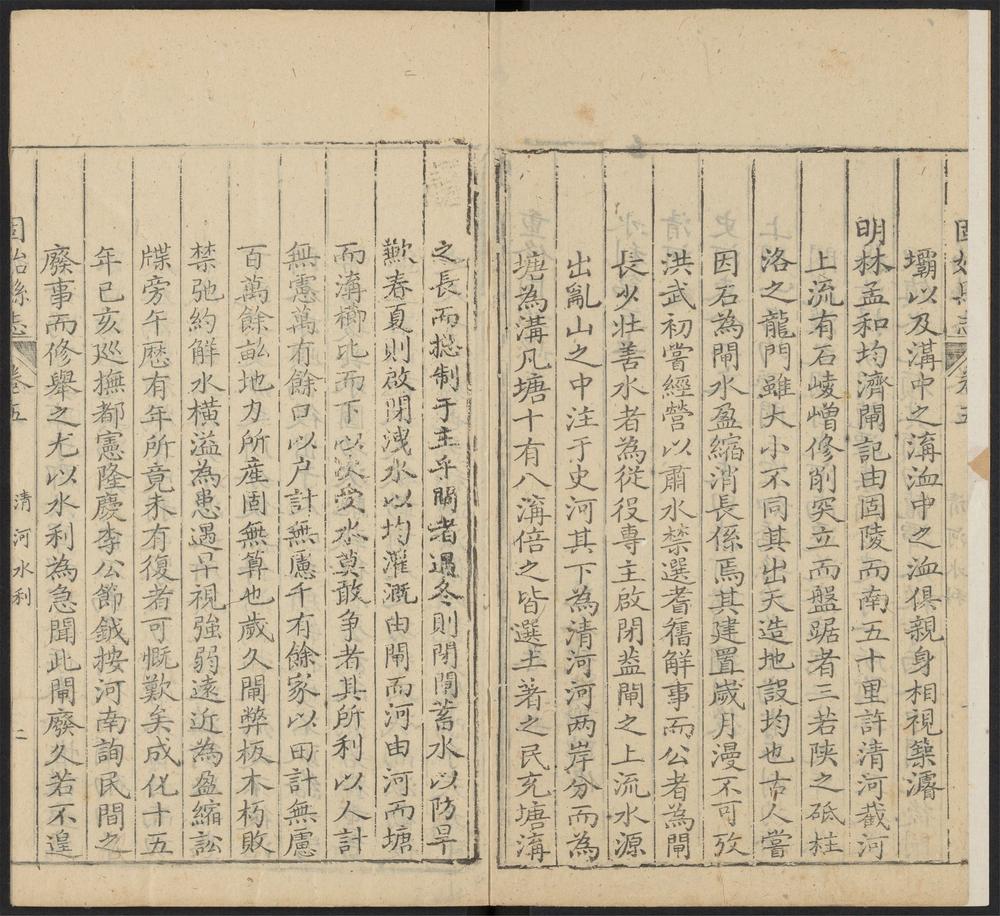 壩以及溝中之溝洫中之洫俱親身相視築濬
明林孟和均濟閘記由固陵而南五十里許清河截河
上流有石崚嶒修削突立而盤踞者三若陝之砥柱
洛之龍門雖大小不同其出天造地設均也古人嘗
因石為閘水盈縮消長係焉其建置歲月漫不可攷
洪武初嘗經營以肅水禁選耆舊解事而公者為閘
長少壯善水者為從役專主啟閉葢閘之上流水源
出亂山之中注于史河其下為清河河两岸分而為
塘為溝凡塘十有八溝倍之皆選土著之民充塘溝
之長而摠制于主乎閘者遇冬則閉閘蓄水以防旱
歉春夏則啟閉洩水以均灌溉由閘而河由河而塘
而溝櫛比而下以次受水莫敢争者其所利以人計
無慮萬有餘口以户計無慮千有餘家以田計無慮
百萬餘畝地力所産固無算也歲久閘弊板木朽敗
禁弛約解水横溢為患遇旱視強弱遠近為盈縮訟
牒旁午歴有年所竟未有復者可慨歎矣成化十五
年已亥廵撫都憲隆慶李公節鉞按河南詢民間之
廢事而修舉之尤以水利為急聞此閘廢久若不遑
固始縣志 卷五 清河水利 二